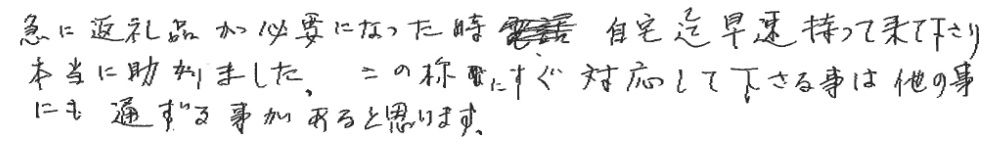 急に返礼品が必要になった時 自宅迄早速持って来て下さり
本当に助かりました。この様にすぐ対応して下さる事は他の事
にも通ずる事があると思います。